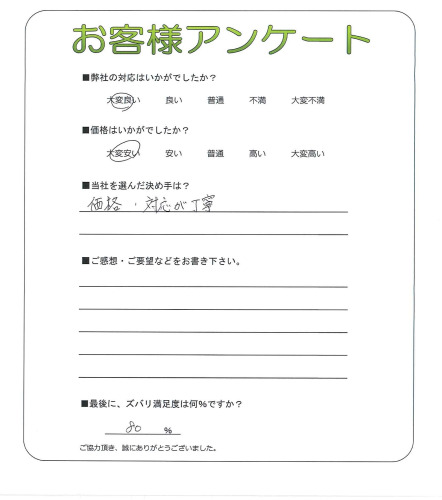 お客様アンケート
■弊社の対応はいかがでしたか？
大変良い 良い 普通 不満 大変不満
■価格はいかがでしたか？
大変安い 安い 普通 高い 大変高い
■当社を選んだ決め手は？
価格・対応が丁寧
■ご感想・ご要望などをお書き下さい。
■最後に、ズバリ満足度は何%ですか？
80 %
ご協力頂き、誠にありがとうございました。